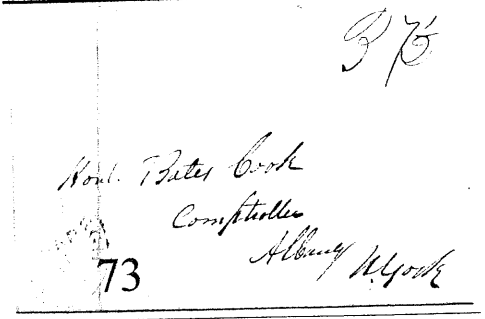 Honl. Bates Cook
Comptroller
Albany
N. York
73